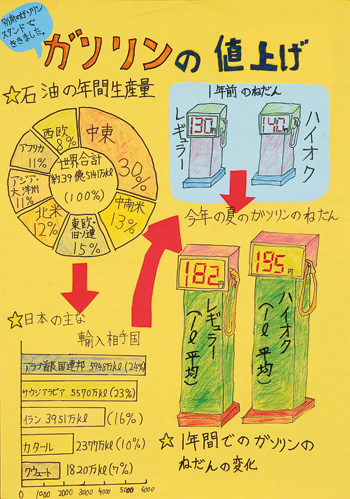 別府のガソリン
スタンドで
ききました。
ガソリンの値上げ
☆石油の年間生産量
中東
30%
中南米
13%
東欧・
旧ソ連
15%
北米
12%
アジア・
大洋州
11%
アフリカ
11%
西欧
8%
世界合計
約39億514万kl
(100%)
1年前のねだん
130円
レギュラー
142円
ハイオク
今年の夏のガソリンのねだん
182円
レギュラー
(1ℓ平均)
195円
ハイオク
(1ℓ平均)
☆日本の主な
輸入相手国
アラブ首長国連邦 5945万kl (24%)
サウジアラビア 5570万kl (23%)
イラン 3951万kl (16%)
カタール 2377万kl (10%)
クウェート 1820万kl (7%)
0 1000 2000 3000 4000 5000 6000
☆1年間でのガソリンの
ねだんの変化